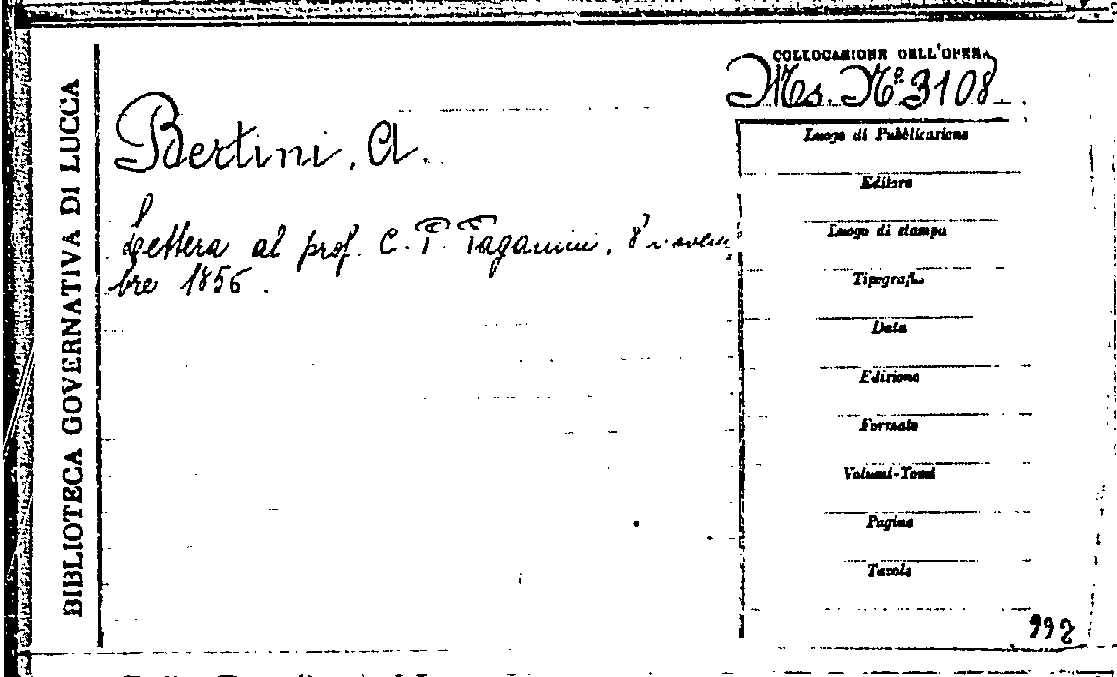 BIBLIOTECA GOVERNATIVA DI LUCCA
COLLOCAZIONE DELL'OPERA
Ms. Nº 3108
Bertini, A.
Lettera al prof. C. P. Paganini, 8 novem-
bre 1856.
Luogo di Pubblicazione
Editore
Luogo di stampa
Tipografo
Data
Edizione
Formato
Volumi-Tomi
Pagine
Tavole
992